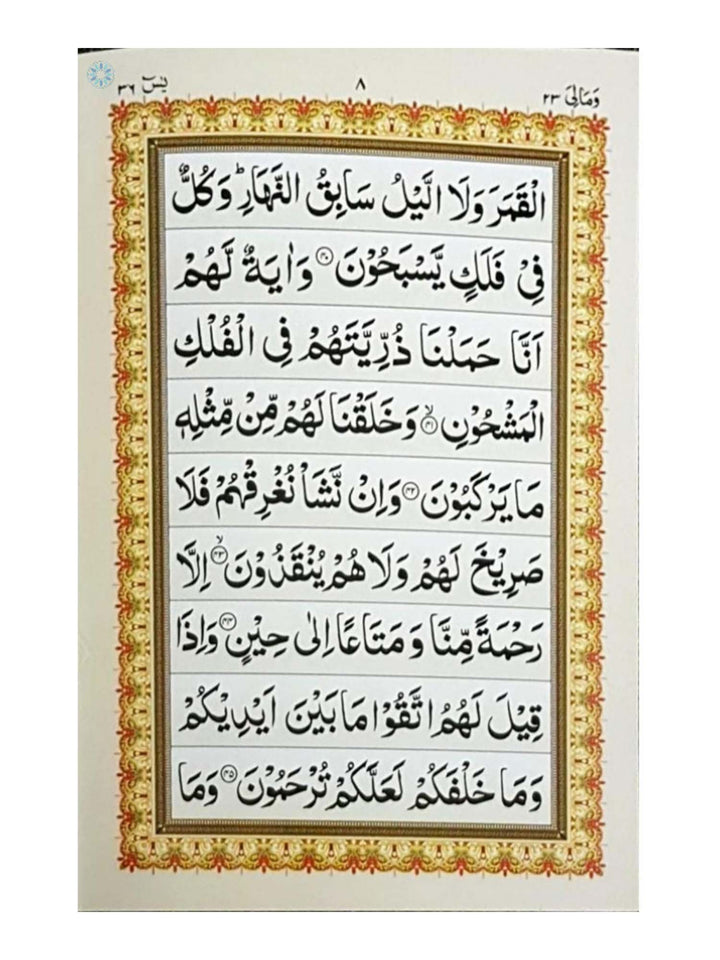 وَمَالِيَ ٢٣
٨
يٰسٓ ٣٦
الْقَمَرَ وَلَا الَّيْلُ سَابِقُ النَّهَارِ ؕ وَكُلٌّ
فِيْ فَلَكٍ يَّسْبَحُوْنَ ﴿۴۰﴾ وَاٰيَةٌ لَّهُمْ
اَنَّا حَمَلْنَا ذُرِّيَّتَهُمْ فِي الْفُلْكِ
الْمَشْحُوْنِ ﴿۴۱﴾ۙ وَخَلَقْنَا لَهُمْ مِّنْ مِّثْلِهٖ
مَا يَرْكَبُوْنَ ﴿۴۲﴾ وَاِنْ نَّشَاْ نُغْرِقْهُمْ فَلَا
صَرِيْخَ لَهُمْ وَلَا هُمْ يُنْقَذُوْنَ ﴿۴۳﴾ۙ اِلَّا
رَحْمَةً مِّنَّا وَمَتَاعًا اِلٰى حِيْنٍ ﴿۴۴﴾ وَاِذَا
قِيْلَ لَهُمُ اتَّقُوْا مَا بَيْنَ اَيْدِيْكُمْ
وَمَا خَلْفَكُمْ لَعَلَّكُمْ تُرْحَمُوْنَ ﴿۴۵﴾ وَمَا